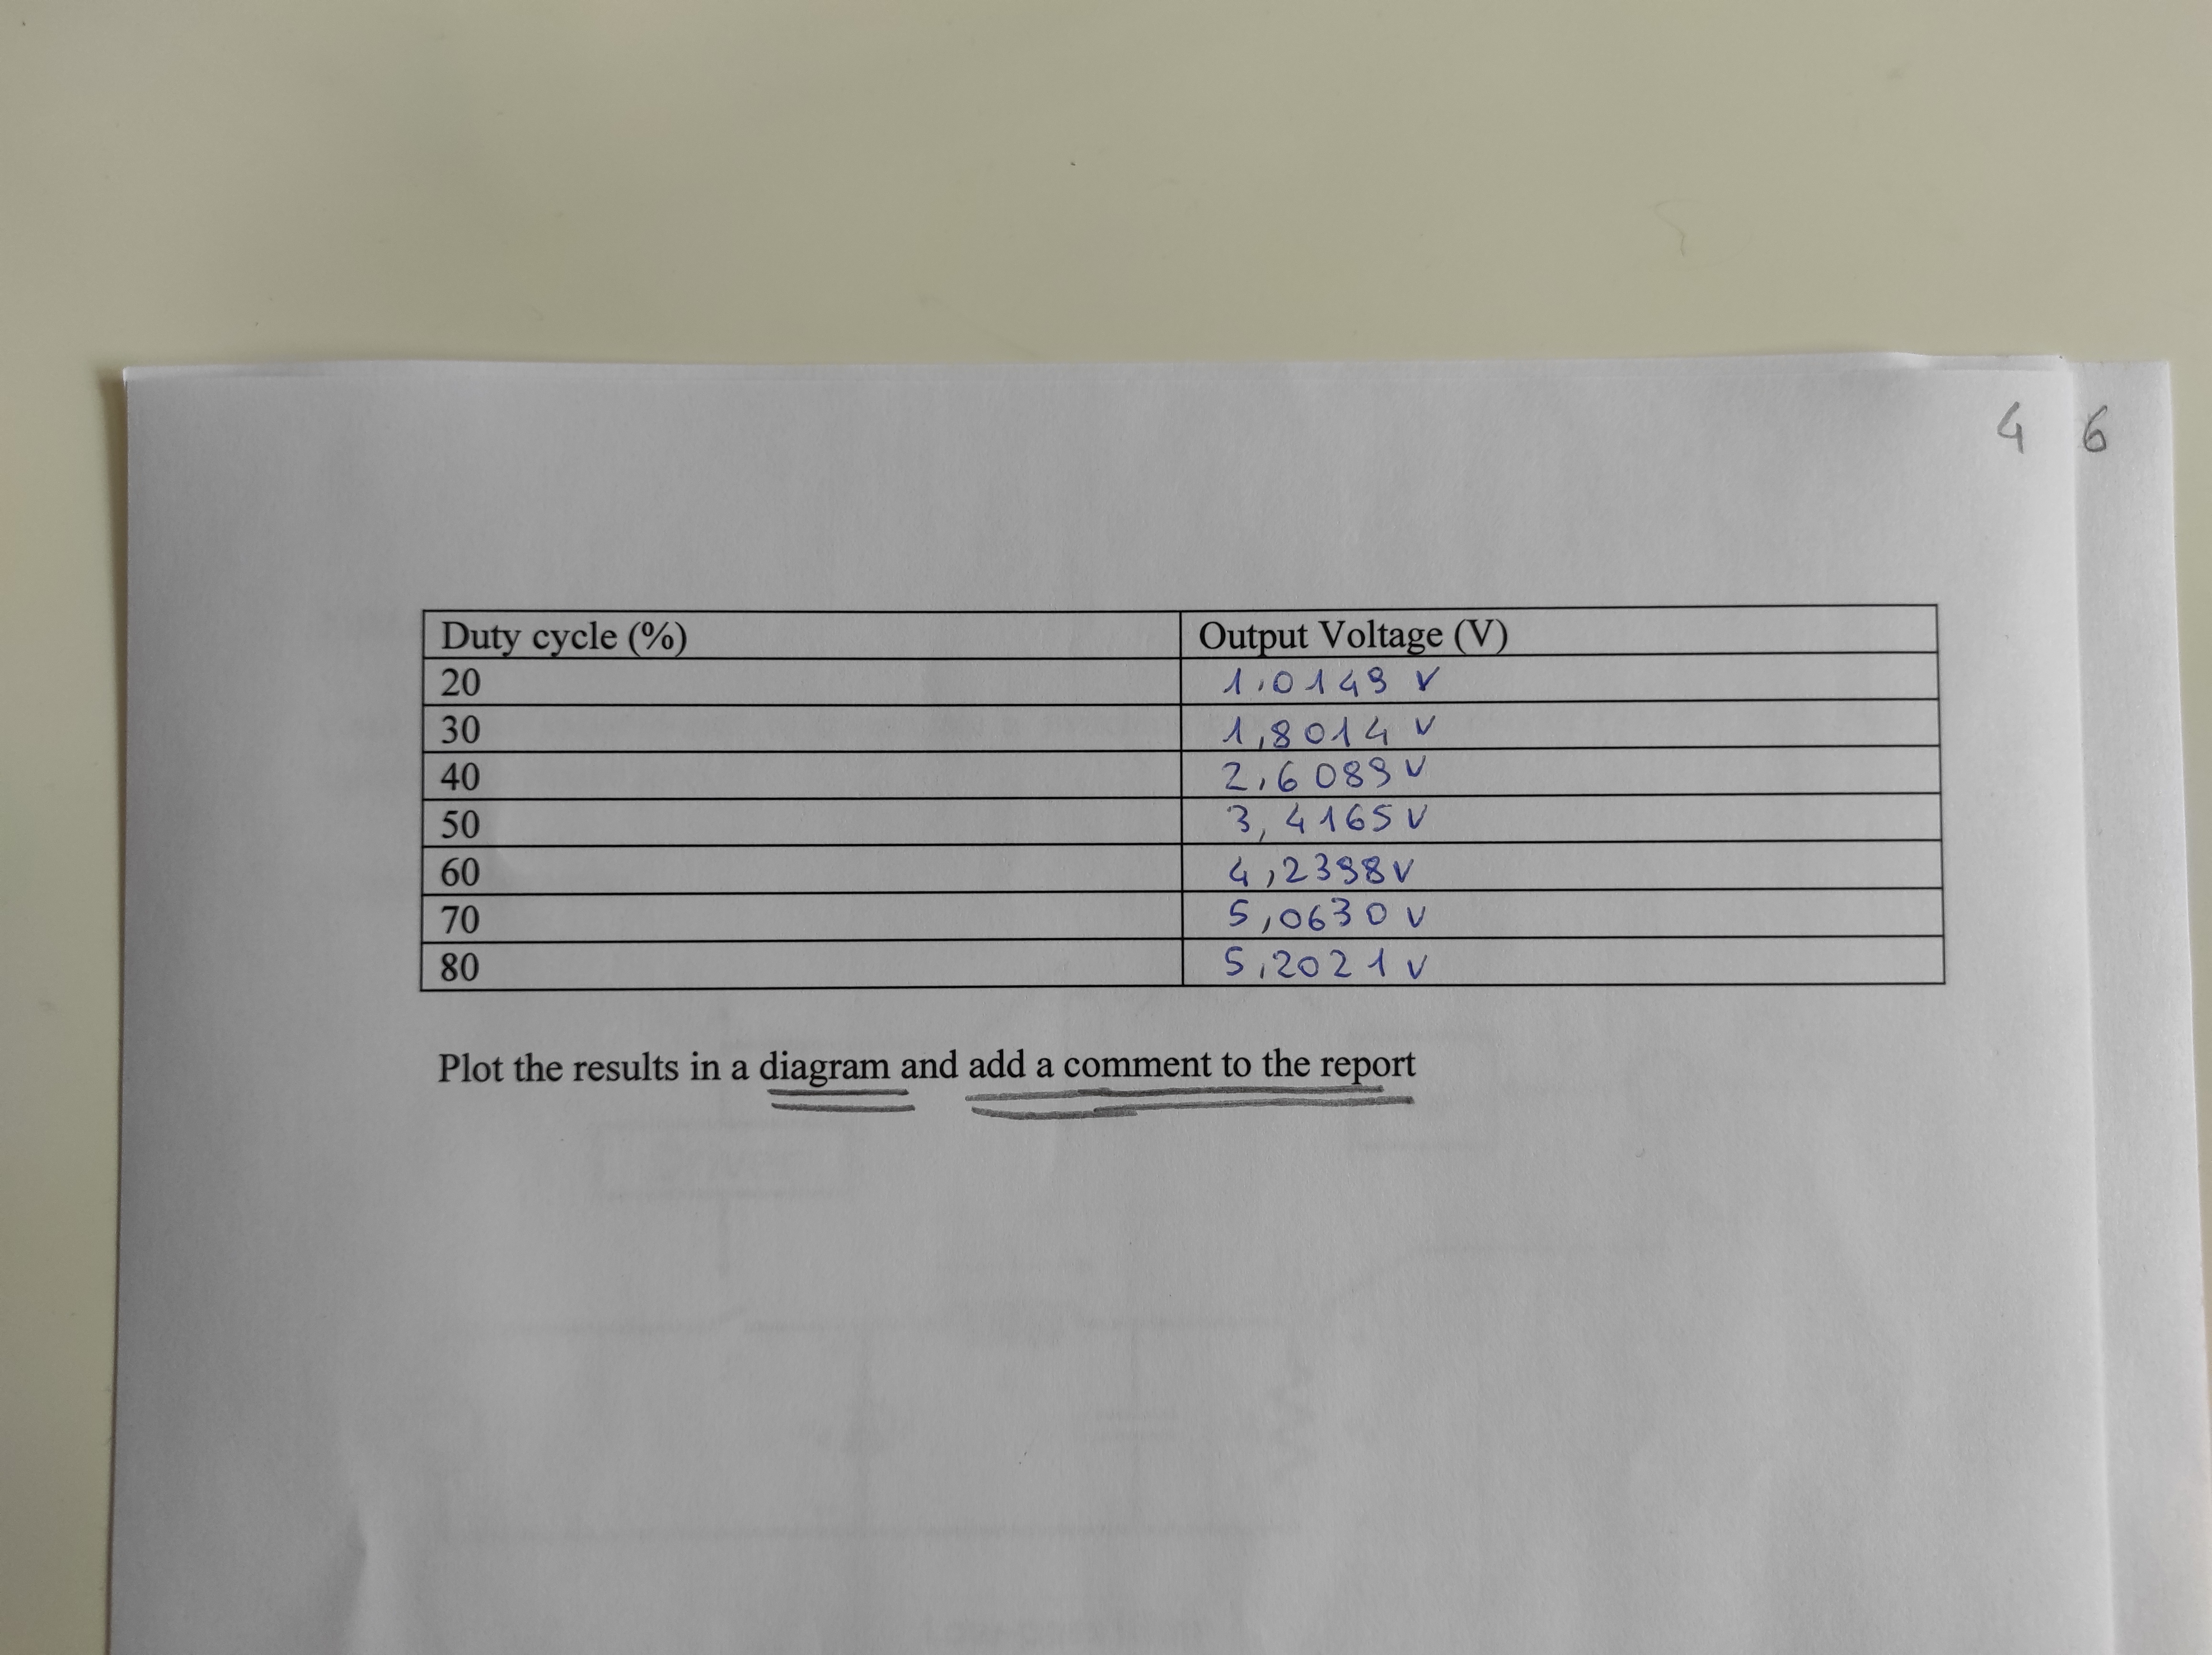 4 6
Duty cycle (%) Output Voltage (V)
20 1,0149 V
30 1,8014 V
40 2,6089 V
50 3,4165 V
60 4,2398 V
70 5,0630 V
80 5,2021 V
Plot the results in a diagram and add a comment to the report